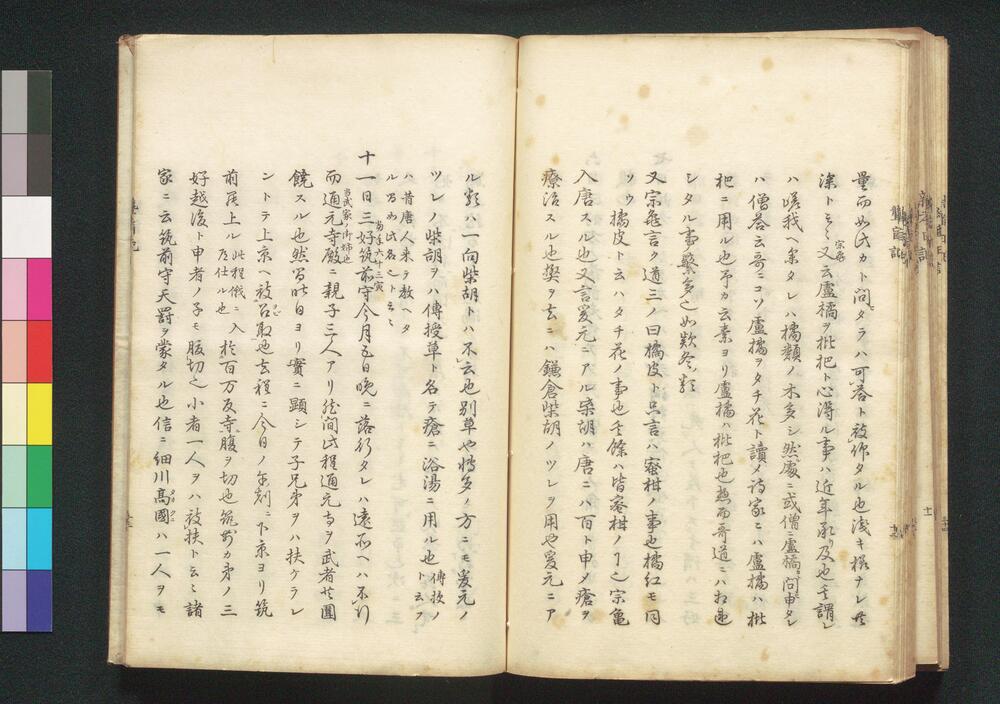 量而如氏カト問タラハ可答ト被作タル也浅キ様ナレ共
深トミミ又云盧橘ヲ枇杷ト心得ル事ハ近年承リ及也其謂レ
宗亀
ハ嵯我ヘ参タレハ橘類ノ木多シ然處ニ或僧ニ盧橘ヲ問申タレ
ハ僧答云哥ニコソ盧橘ヲタチ花ト讀メ詩家ニハ盧橘ハ枇
杷ニ用ル也予カ云素ヨリ盧橘ハ枇杷也然而哥道ニハ相違
シタル事繁多也如款冬類
又宗亀言ク道三ノ曰橘皮ト只言ハ蜜柑ノ事也橘紅モ同
ソウ 橘皮ト云ハタチ花ノ事也其餘ハ皆蜜柑ノ事之宗亀
入唐スル也又言爰元ニアル柴胡ハ唐ニハ百ト申メ瘡ヲ
療治スル也煑ヲ云ニハ鎌倉柴胡ノツレヲ用也爰元ニア
ル類ハ一向柴胡トハ不云也別草や博多ノ方ニモ爰元ノ
ツレノ柴胡ヲハ傳授草ト名テ瘡ニ浴湯ニ用ル也 傳授ノト云ヲ
ハ昔唐人来ヲ教ヘタ
ル乃如氏名之ト云ミ
十一日三好筑前守今月五日晩ニ落行タレハ遠所ヘハ不行
当年六廿三寅
而通元寺殿ニ親子三人アリ然間此程通元寺ヲ武者共圍
当武家ノ御姉也
饒スル也然間昨日ヨリ實ニ顕シテ子兄弟ヲハ扶ケラレ
ントテ上京ヘ被召取也去程ニ今日ノ午刻ニ下京ヨリ筑
前居上ル 此程俄ニ入乃仕ル也 於百万反寺腹ヲ切也筑前カ弟ノ三
好越後ト申者ノ子モ腹切之小者一人ヲハ被扶ト云ミ諸
家ニ云筑前守天罰ヲ蒙タル也信ニ細川髙國ハ一人ヲモ